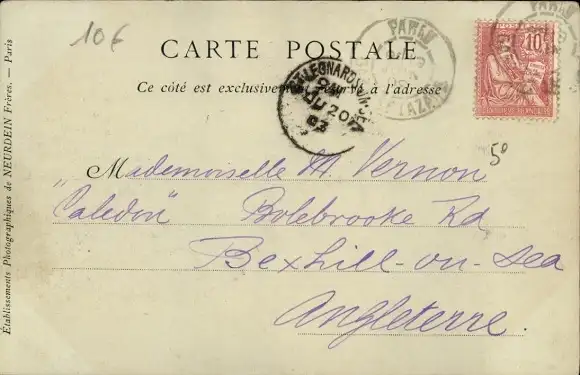 10€
CARTE POSTALE
Ce côté est exclusivement réservé à l'adresse
PARIS
LAZARE
10
ST LEONARDS-ON-SEA
JU 20
03
50
Mademoiselle M. Vernon
"Caledon" Bolebrooke Rd
Bexhill-on-sea
Angleterre.
Établissements Photographiques de NEURDEIN Frères. — Paris